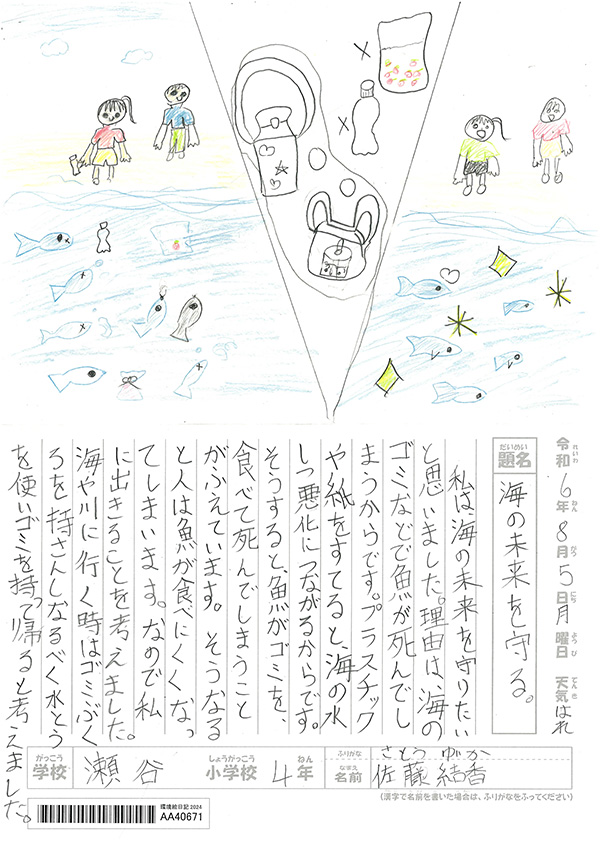 令和6年8月5日月曜日 天気はれ
れいわ ねん がつ にち ようび てんき
だいめい
題名
海の未来を守る。
私は海の未来を守りたい
と思いました。理由は、海の
ゴミなどで魚が死んでし
まうからです。プラスチック
や紙をすてると、海の水
しつ悪化につながるからです。
そうすると、魚がゴミを、
食べて死んでしまうこと
がふえています。そうなる
と人は魚が食べにくくなっ
てしまいます。なので私
に出きることを考えました。
海や川に行く時はゴミぶく
ろを持さんしなるべく水とう
を使いゴミを持って帰ると考えました。
がっこう しょうがっこう ねん ふりがな さとう ゆか
学校 瀬谷 小学校 4年 なまえ 名前 佐藤結香
(漢字で名前を書いた場合は、ふりがなをふってください)
環境絵日記2024
AA40671